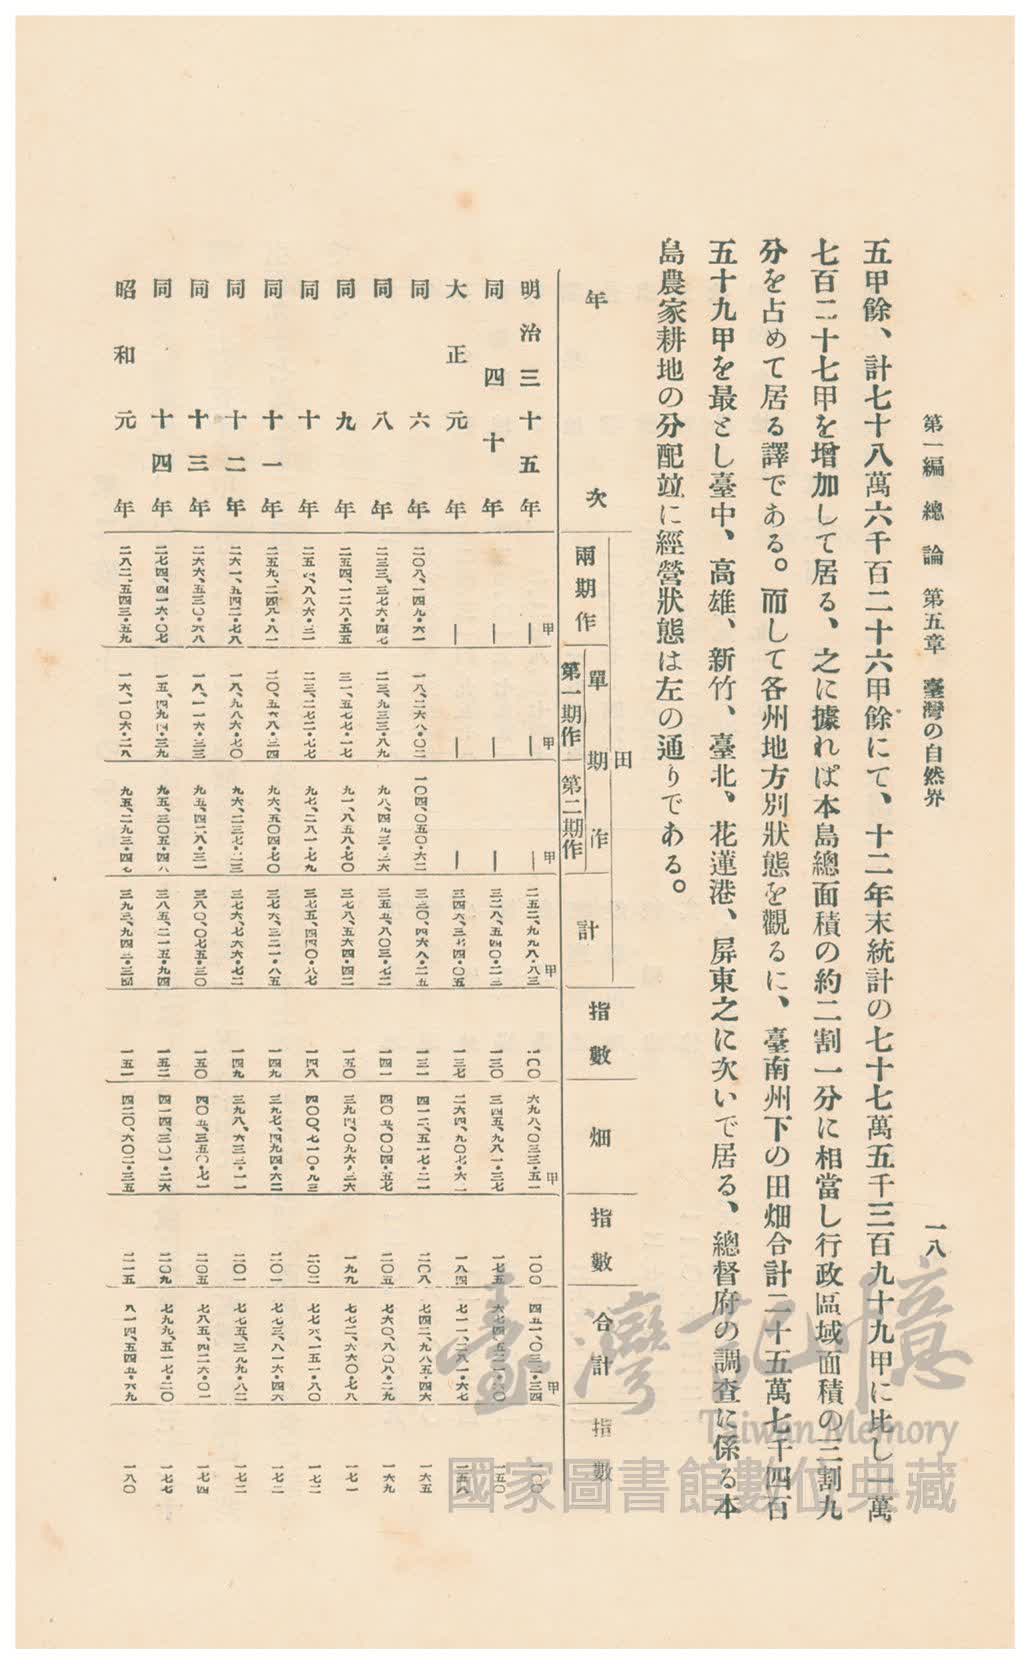 第一編　總　論　第五章　臺灣の自然界　一八
五甲餘、計七十八萬六千百二十六甲餘にて、十二年末統計の七十七萬五千三百九十九甲に比し一萬
七百二十七甲を增加して居る、之に據れば本島總面積の約二割一分に相當し行政區域面積の三割九
分を占めて居る譯である。而して各州地方別狀態を觀るに、臺南州下の田畑合計二十五萬七千四百
五十九甲を最とし臺中、高雄、新竹、臺北、花蓮港、屏東之に次いで居る、總督府の調査に係る本
島農家耕地の分配竝に經營狀態は左の通りである。
年次　田　兩期作　單期作　第一期作　第二期作　計　指數　畑　指數　合計　指數
明治三十五年　甲　｜　甲　｜　甲　｜　甲　二五二、九九八・八三　一〇〇　甲　一九八、〇三三・五一　一〇〇　甲　四五一、〇三二・三四　一〇〇
同四十年　｜　｜　｜　三二八、五四〇・二三　一三〇　三四五、九八一・三七　一七五　六七四、五二一・六〇　一五〇
大正元年　｜　｜　｜　三四六、三七四・〇五　一三七　三六四、九〇七・六二　一八四　七一一、二八一・六七　一五八
同六年　二〇八、一四九・六一　一八、二六八・〇二　一〇四、〇五〇・六二　三三〇、四六八・二五　一三一　四一二、五一七・二一　二〇八　七四二、九八五・四六　一六五
同八年　二三三、三七六・四七　二三、九三三・八九　九八、四九三・三六　三五五、八〇三・七二　一四一　四〇五、〇〇四・五七　二〇五　七六〇、八〇八・二九　一六九
同九年　二五四、一二八・五五　三一、五七七・一七　九一、八五八・七〇　三七八、五六四・四二　一五〇　三九四、〇九六・三六　一九九　七七二、六六〇・七八　一七一
同十年　二五四、八八六・三一　二三、二七二・七七　九七、二八一・七九　三七五、四四〇・八七　一四八　四〇〇、七一〇・九三　二〇二　七七六、一五一・八〇　一七二
同十一年　二五九、二四八・八一　二〇、五六八・三四　九六、五〇四・七〇　三七六、三二一・八五　一四九　三九七、四九四・六一　二〇一　七七三、八一六・四六　一七二
同十二年　二六一、五四二・七八　一八、九八六・七〇　九六、二三七・二三　三七六、七六六・七一　一四九　三九八、六三三・一一　二〇一　七七五、三九九・八二　一七二
同十三年　二六六、五三〇・六八　一八、一一六・三三　九五、四二八・三一　三八〇、〇七五・三〇　一五〇　四〇五、三五〇・七一　二〇五　七八五、四二六・〇一　一七四
同十四年　二七四、四一六・〇七　一五、四九四・三九　九五、三〇五・四八　三八五、二一五・九四　一五二　四一四、三〇一・二六　二〇九　七九九、五一七・二〇　一七七
昭和元年　二八二、五四三・五九　一六、一〇六・二八　九五、二九三・四七　三九三、九四三・三四　一五一　四二〇、六〇二・三五　二一五　八一四、五四五・六九　一八〇
臺灣記憶
Taiwan Memory
國家圖書館數位典藏